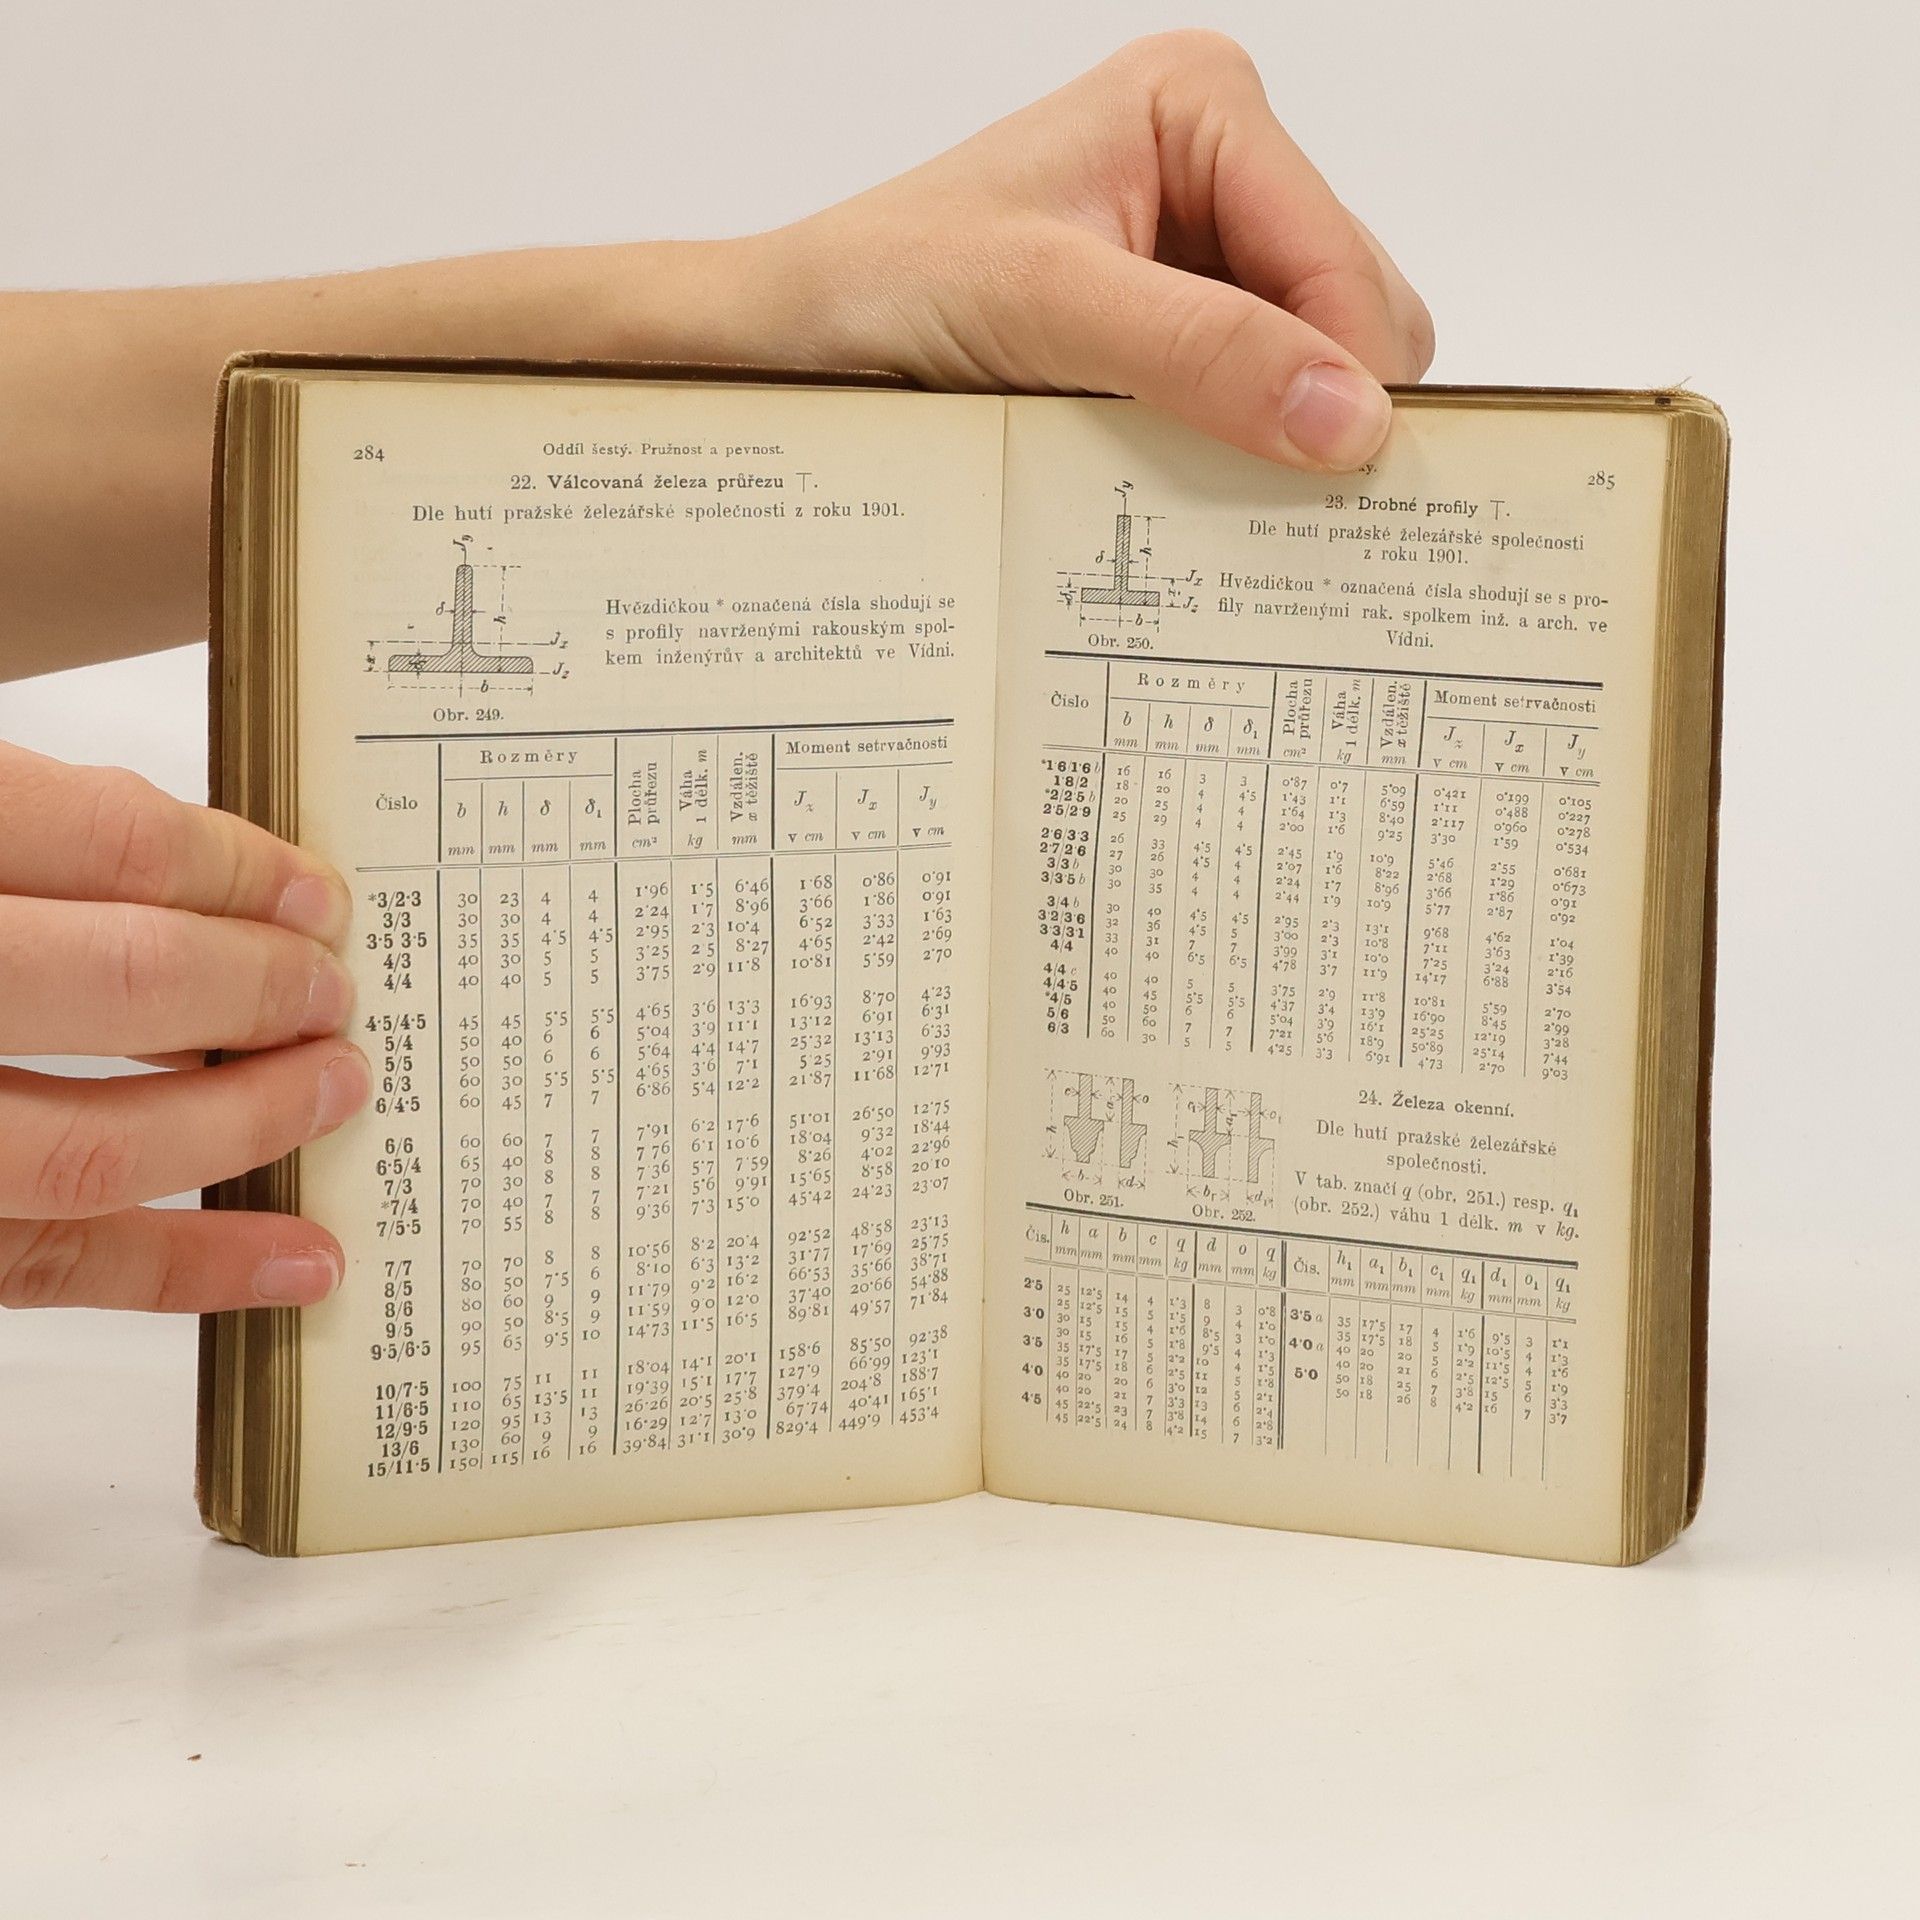 284
Oddíl šestý. Pružnost a pevnost.
22. Válcovaná železa průřezu T.
Dle hutí pražské železářské společnosti z roku 1901.
Jy
δ
h
Jx
Jz
b
Obr. 249.
Hvězdičkou * označená čísla shodují se
s profily navrženými rakouským spol-
kem inženýrův a architektů ve Vídni.
Číslo Rozměry Plocha průřezu Váha 1 délk. m Vzdálen. x těžiště Moment setrvačnosti
b h δ δ1 Jz Jx Jy
mm mm mm mm cm² kg mm v cm v cm v cm
*3/2·3 30 23 4 4 1·96 1·5 6·46 1·68 0·86 0·91
3/3 30 30 4 4 2·24 1·7 8·96 3·66 1·86 0·91
3·5 3·5 35 35 4·5 4·5 2·95 2·3 10·4 6·52 3·33 1·63
4/3 40 30 5 5 3·25 2 5 8·27 4·65 2·42 2·69
4/4 40 40 5 5 3·75 2·9 11·8 10·81 5·59 2·70
4·5/4·5 45 45 5·5 5·5 4·65 3·6 13·3 16·93 8·70 4·23
5/4 50 40 6 6 5·04 3·9 11·1 13·12 6·91 6·31
5/5 50 50 6 6 5·64 4·4 14·7 25·32 13·13 6·33
6/3 60 30 5·5 5·5 4·65 3·6 7·1 5·25 2·91 9·93
6/4·5 60 45 7 7 6·86 5·4 12·2 21·87 11·68 12·71
6/6 60 60 7 7 7·91 6·2 17·6 51·01 26·50 12·75
6·5/4 65 40 8 8 7 76 6·1 10·6 18·04 9·32 18·44
7/3 70 30 8 8 7·36 5·7 7·59 8·26 4·02 22·96
*7/4 70 40 7 7 7·21 5·6 9·91 15·65 8·58 20·10
7/5·5 70 55 8 8 9·36 7·3 15·0 45·42 24·23 23·07
7/7 70 70 8 8 10·56 8·2 20·4 92·52 48·58 23·13
8/5 80 50 7·5 6 8·10 6·3 13·2 31·77 17·69 25·75
8/6 80 60 9 9 11·79 9·2 16·2 66·53 35·66 38·71
9/5 90 50 8·5 9 11·59 9 0 12·0 37·40 20·66 54·88
9·5/6·5 95 65 9·5 10 14·73 11·5 16·5 89·81 49·57 71·84
10/7·5 100 75 11 11 18·04 14·1 20·1 158·6 85·50 92·38
11/6·5 110 65 13·5 11 19·39 15·1 17·7 127·9 66·99 123·1
12/9·5 120 95 13 13 26·26 20·5 25·8 379·4 204·8 188·7
13/6 130 60 9 9 16·29 12·7 13·0 67·74 40·41 165·1
15/11·5 150 115 16 16 39·84 31·1 30·9 829·4 449·9 453·4
285
23. Drobné profily T.
Dle hutí pražské železářské společnosti
z roku 1901.
Hvězdičkou * označená čísla shodují se s pro-
fily navrženými rak. spolkem inž. a arch. ve
Vídni.
Jy
δ
h
Jx
Jz
b
Obr. 250.
Číslo Rozměry Plocha průřezu Váha 1 délk. m Vzdálen. x těžiště Moment setrvačnosti
b h δ δ1 Jz Jx Jy
mm mm mm mm cm² kg mm v cm v cm v cm
*1·6/1·6 b 16 16 3 3 0·87 0·7 5·09 0·421 0·199 0·105
1·8/2 18 20 4 4·5 1·43 1·1 6·59 1·11 0·488 0·227
*2/2·5 b 20 25 4 4 1·64 1·3 8·40 2·117 0·960 0·278
2·5/2·9 25 29 4 4 2·00 1·6 9·25 3·30 1·59 0·534
2·6/3·3 26 33 4·5 4·5 2·45 1·9 10·9 5·46 2·55 0·681
2·7/2·6 27 26 4·5 4 2·07 1·6 8·22 2·68 1·29 0·673
3/3 b 30 30 4 4 2·24 1·7 8·96 3·66 1·86 0·91
3/3·5 b 30 35 4 4 2·44 1·9 10·9 5·77 2·87 0·92
3/4 b 30 40 4·5 4·5 2·95 2·3 13·1 9·68 4·62 1·04
3·2/3·6 32 36 4·5 5 3·00 2·3 10·8 7·11 3·63 1·39
3·3/3·1 33 31 7 7 3·99 3·1 10·0 7·25 3·24 2·16
4/4 40 40 6·5 6·5 4·78 3·7 11·9 14·17 6·88 3·54
4/4 c 40 40 5 5 3·75 2·9 11·8 10·81 5·59 2·70
4/4·5 40 45 5·5 5·5 4·37 3·4 13·9 16·90 8·45 2·99
*4/5 40 50 6 6 5·04 3·9 16·1 25·25 12·19 3·28
5/6 50 60 7 7 7·21 5·6 18·9 50·89 25·14 7·44
6/3 60 30 5 5 4·25 3·3 6·91 4·73 2·70 9·03
Obr. 251.
Obr. 252.
24. Železa okenní.
Dle hutí pražské železářské
společnosti.
V tab. značí q (obr. 251.) resp. q1
(obr. 252.) váhu 1 délk. m v kg.
Čís. h a b c q d o q Čís. h1 a1 b1 c1 q1 d1 o1 q1
mm mm mm mm kg mm mm kg mm mm mm mm kg mm mm kg
2·5 25 12·5 14 4 1·3 8 3 0·8 3·5 a 35 17·5 17 4 1·6 9·5 3 1·1
25 12·5 15 5 1·5 9 4 1·0 35 17·5 18 5 1·9 10·5 4 1·3
3·0 30 15 15 4 1·6 8·5 3 1·0 4·0 a 40 20 20 5 2·2 11·5 4 1·6
30 15 16 5 1·8 9·5 4 1·3 40 20 21 6 2·5 12·5 5 1·9
3·5 35 17·5 17 5 2·2 10 4 1·5 5·0 50 18 25 7 3·8 15 6 3·3
35 17·5 18 6 2·5 11 5 1·8 50 18 26 8 4·2 16 7 3·7
4·0 40 20 20 6 3·0 12 5 2·1
40 20 21 7 3·3 13 6 2·4
4·5 45 22·5 23 7 3·8 14 6 2·8
45 22·5 24 8 4·2 15 7 3·2